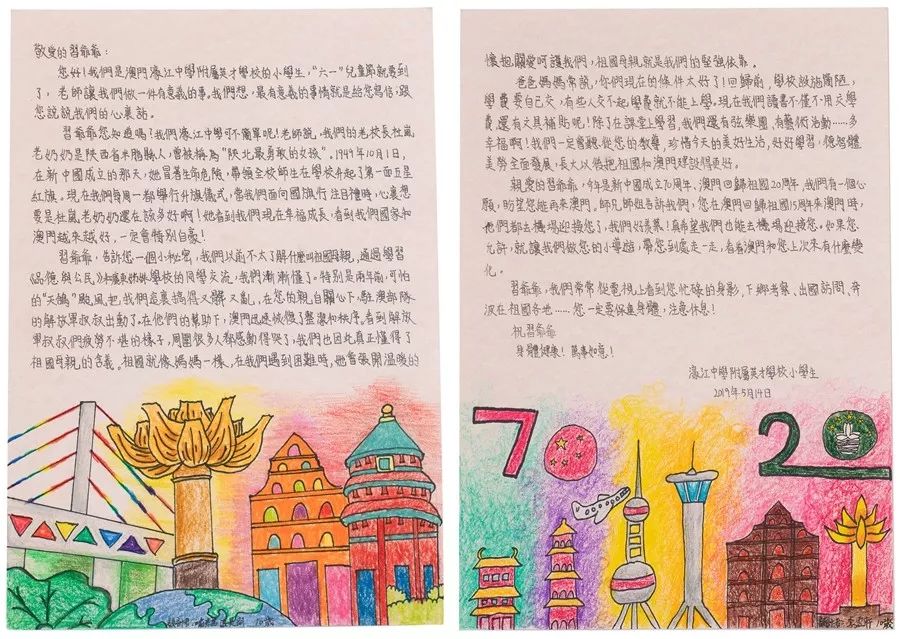 敬愛的習爺爺：
您好！我們是澳門濠江中學附屬英才學校的小學生，“六一”兒童節就要到
了，老師讓我們做一件有意義的事。我們想，最有意義的事情就是給您寫信，跟
您說說我們的心裏話。
習爺爺您知道嗎？我們濠江中學可不簡單呢！老師說，我們的老校長杜嵐
老奶奶是陝西省米脂縣人，曾被稱為“陝北最勇敢的女孩”。1949年10月1日，
在新中國成立的那天，她冒着生命危險，帶領全校師生在學校升起了第一面五星
紅旗。現在我們每周一都舉行升旗儀式，當我們面向國旗行注目禮時，心裏想
要是杜嵐老奶奶還在該多好啊！她看到我們現在幸福成長，看到我們國家和
澳門越來越好，一定會特別自豪！
習爺爺，告訴您一個小秘密，我們以前不太了解什麼叫祖國母親，通過學習
《品德與公民》和學校的同學交流，我們漸漸懂了。特別是兩年前，可怕
的“天鴿”颱風把我們這裏搞得又髒又亂，在您的親自關心下，駐澳部隊
的解放軍叔叔出動了。在他們的幫助下，澳門迅速恢復了整潔和秩序。看到解放
軍叔叔們疲勞不堪的樣子，周圍很多人都感動得哭了，我們也因此真正懂得了
祖國母親的含義。祖國就像媽媽一樣，在我們遇到困難時，她會張開溫暖的
懷抱關愛呵護我們，祖國母親就是我們的堅強依靠。
爸爸媽媽常說，你們現在的條件太好了！回歸前，學校設施簡陋，
學費要自己交，有些人交不起學費就不能上學。現在我們讀書不僅不用交學
費，還有文具補貼呢！除了在課堂上學習，我們還有弦樂團，有藝術活動……多
幸福啊！我們一定會聽從您的教導，珍惜今天的美好生活，好好學習，德智體
美勞全面發展，長大以後把祖國和澳門建設得更好。
親愛的習爺爺，今年是新中國成立70周年、澳門回歸祖國20周年，我們有一個心
願，盼望您能再來澳門。師兄師姐告訴我們，您在澳門回歸祖國15周年來澳門時，
他們都去機場迎接您了，我們好羨慕！真希望我們也能去機場迎接您。如果您
允許，就讓我們做您的小導遊，帶您到處走一走，看看澳門和您上次來有什麼變
化。
習爺爺，我們常常從電視上看到您忙碌的身影，下鄉考察、出國訪問、奔
波在祖國各地……您一定要保重身體，注意休息！
祝習爺爺
身體健康！萬事如意！
濠江中學附屬英才學校小學生
2019年5月14日
70
20
10歲
10歲